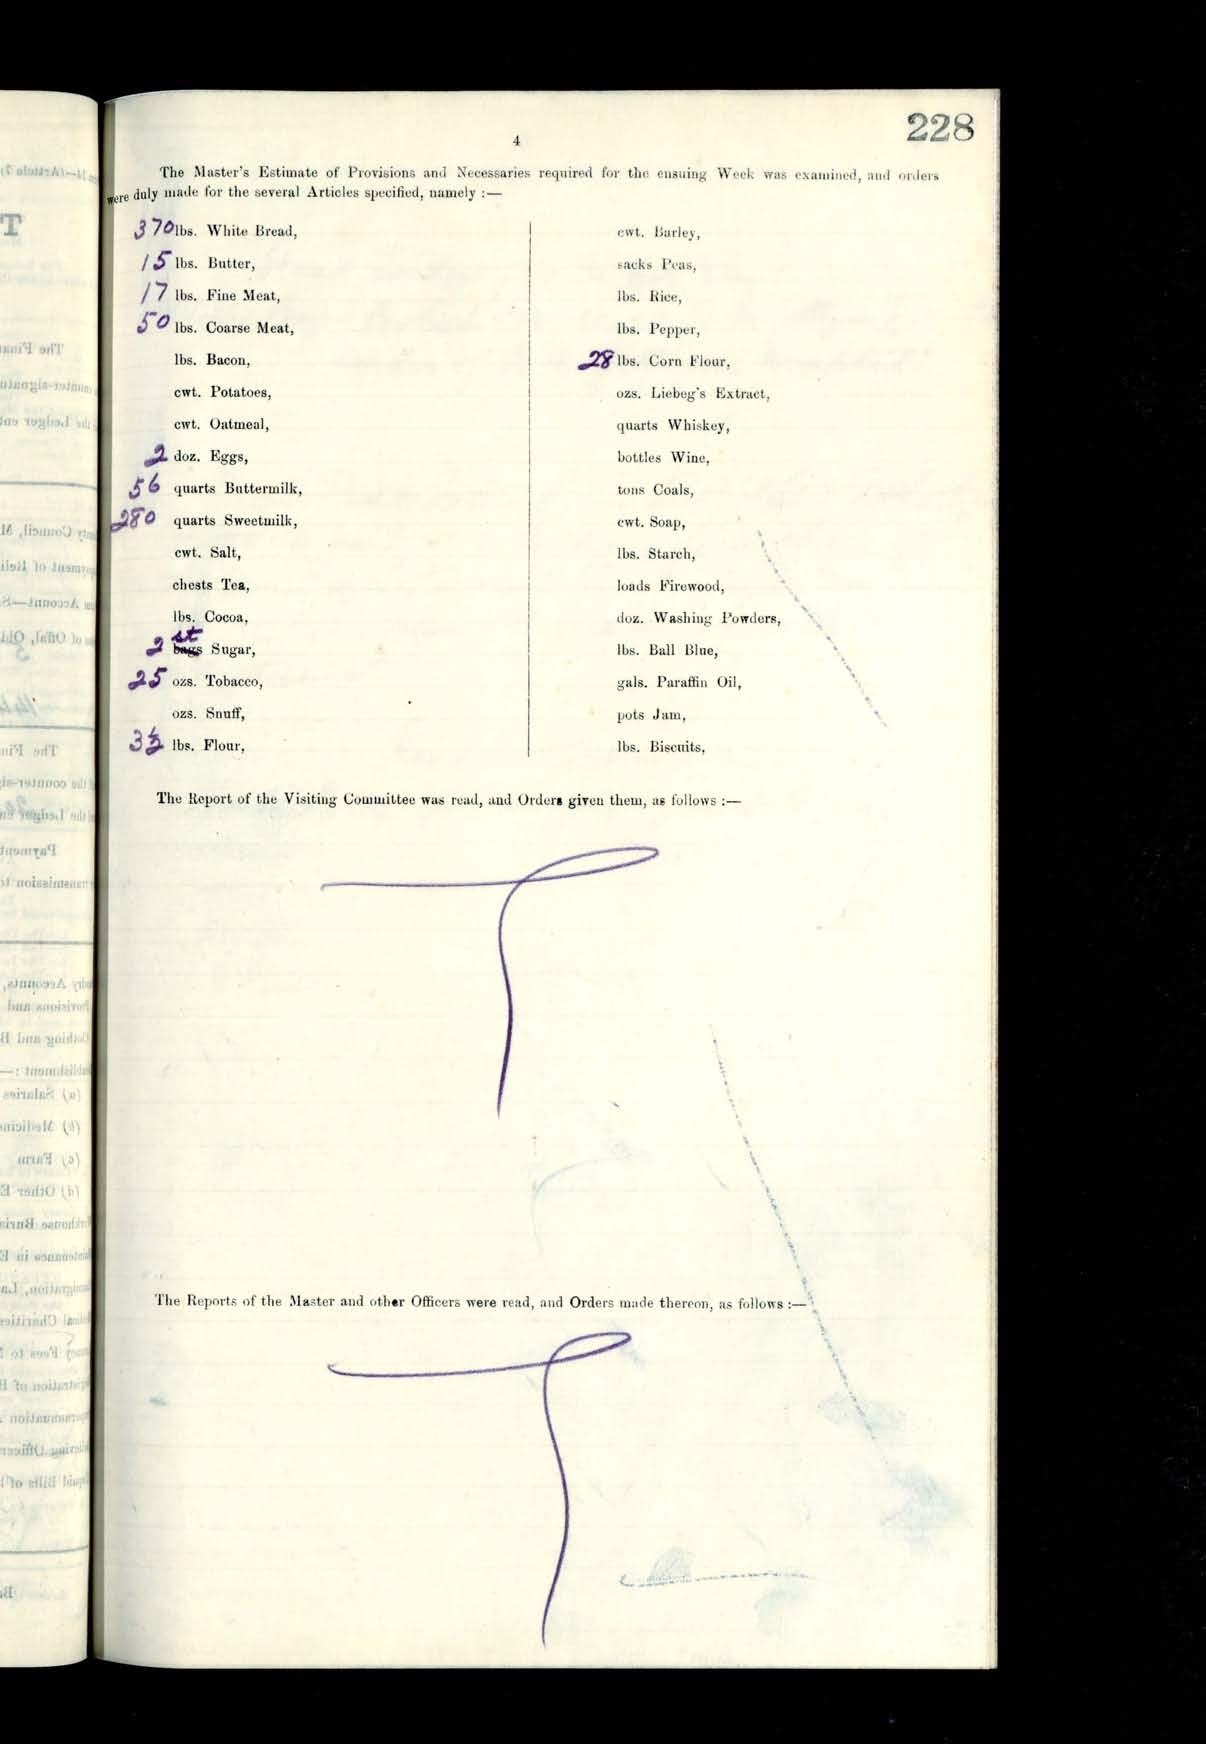 228
4
The Master's Estimate of Provisions and Necessaries required for the ensuing Week was examined, and orders
were duly made for the several Articles specified, namely :—
370 lbs. White Bread,
15 lbs. Butter,
17 lbs. Fine Meat,
50 lbs. Coarse Meat,
lbs. Bacon,
cwt. Potatoes,
cwt. Oatmeal,
2 doz. Eggs,
56 quarts Buttermilk,
280 quarts Sweetmilk,
cwt. Salt,
chests Tea,
lbs. Cocoa,
st
2 bags Sugar,
25 ozs. Tobacco,
ozs. Snuff,
3½ lbs. Flour,
cwt. Barley,
sacks Peas,
lbs. Rice,
lbs. Pepper,
28 lbs. Corn Flour,
ozs. Liebeg's Extract,
quarts Whiskey,
bottles Wine,
tons Coals,
cwt. Soap,
lbs. Starch,
loads Firewood,
doz. Washing Powders,
lbs. Ball Blue,
gals. Paraffin Oil,
pots Jam,
lbs. Biscuits,
The Report of the Visiting Committee was read, and Orders given them, as follows :—
The Reports of the Master and other Officers were read, and Orders made thereon, as follows :—